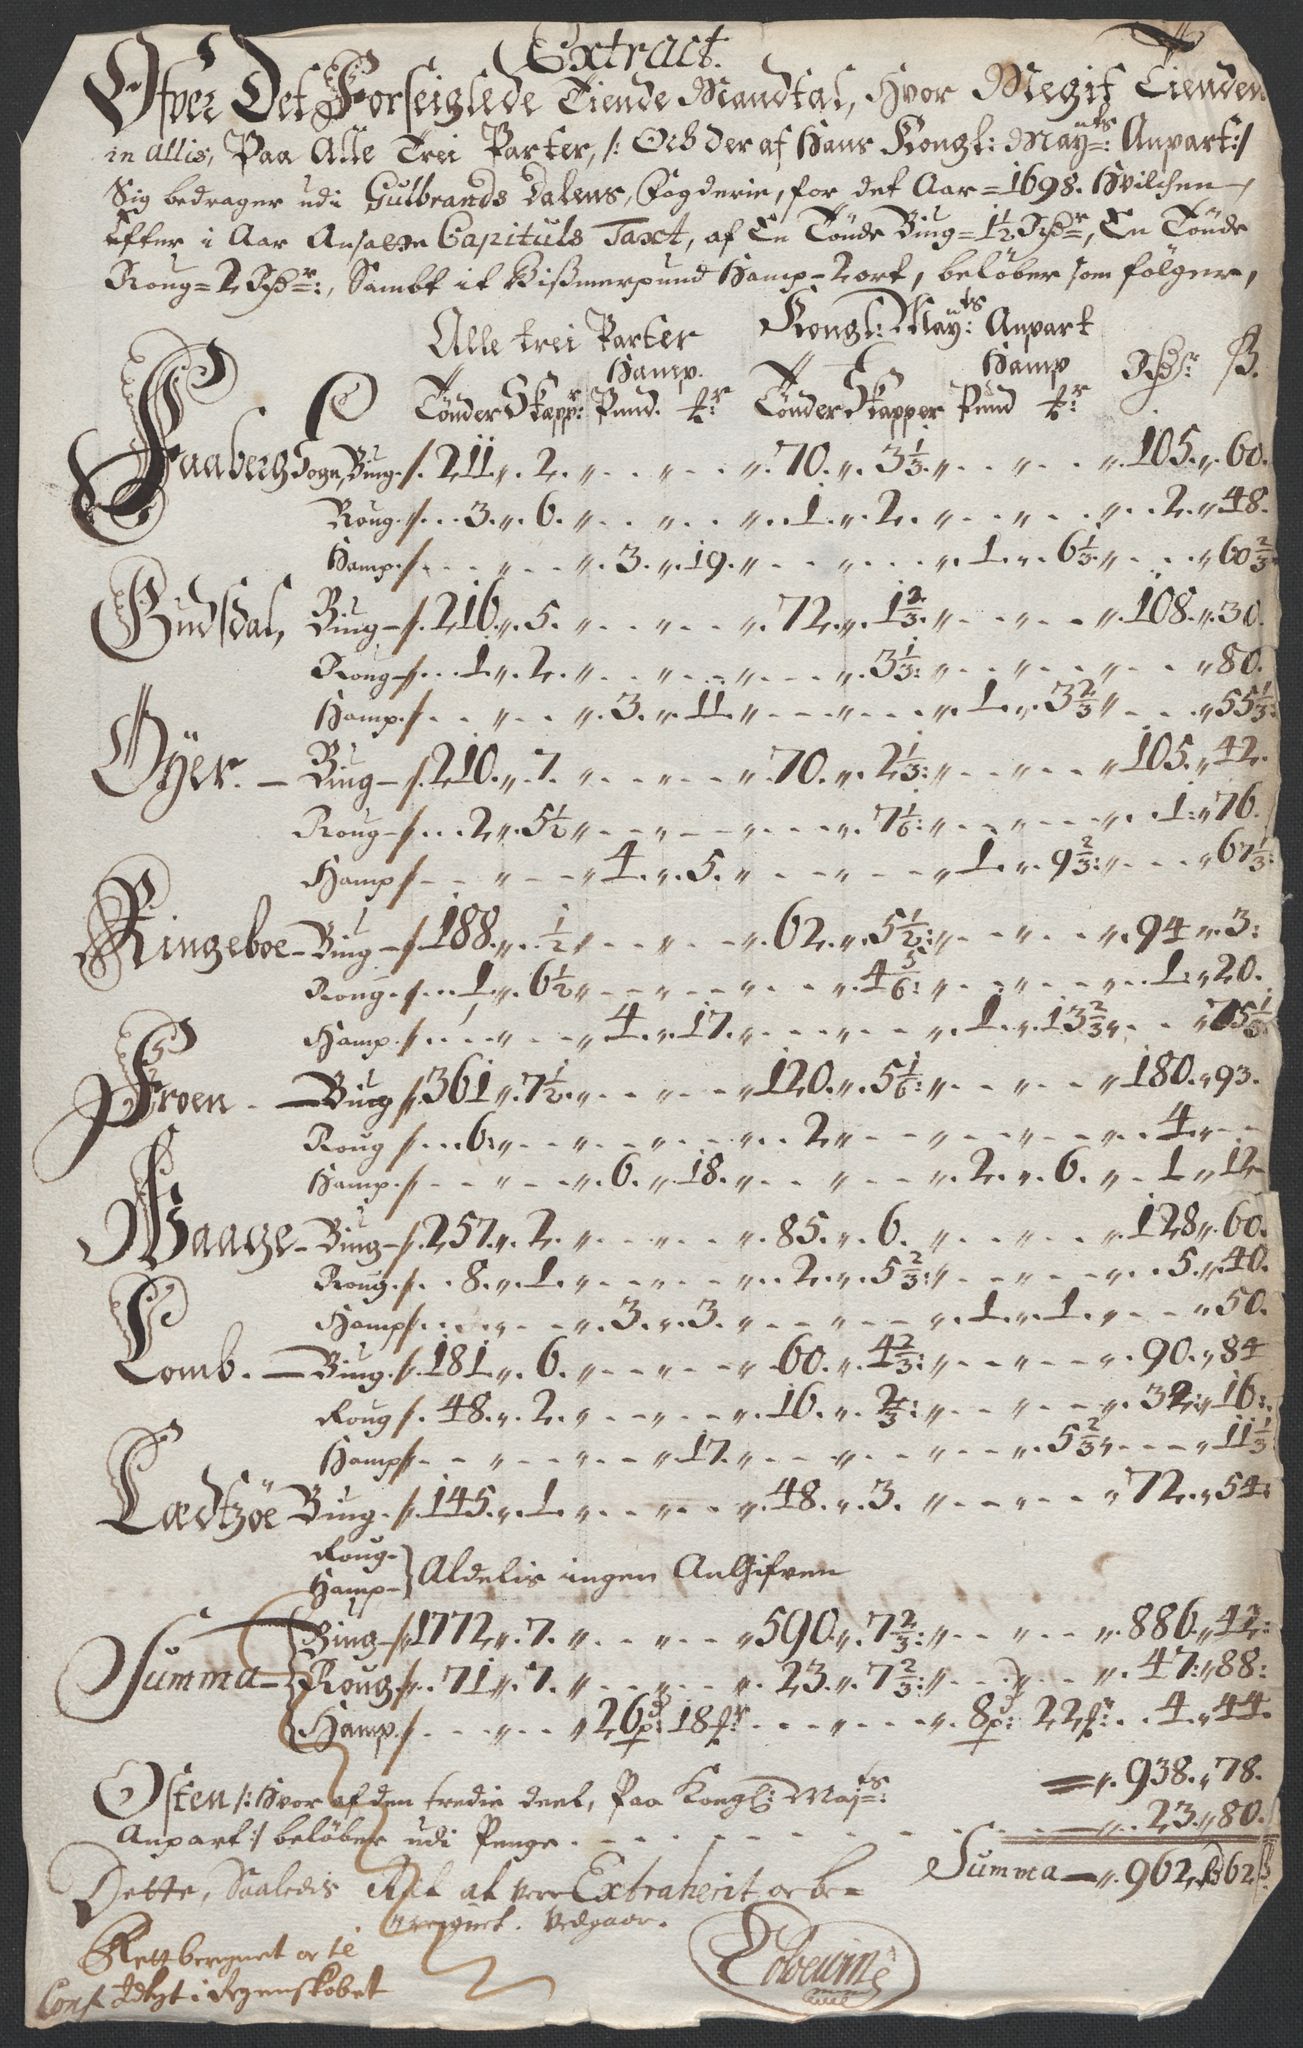 Extract.
Ofver Det Forseiglede Tiende Mandtal, Hvor Megit Tienden
in allis, Paa Alle Trei Parter, /: Och der af Hans Kongl: Mayts: Anpart :/
Sig bedrager udi Gulbrands Dalens, Fogderie, for det Aar = 1698. Hvilchen
efter i Aar Ansatte Capituls Taxt, af En Tönde Biug = 1½ Rdr, En Tönde
Roug = 2 Rdr:, Sambt it Bißmerpund Hamp - 2 ort, belöber som fölger,
Alle trei Parter Kongl: Mayts: Anpart
Hamp. Hamp Rdr ß.
Tönder Skapr: Pund. fr: Tönder Skapper Pund fr:
Faaberg Sogn, Biug. 211 „ 2. „ „ 70. „ 3⅓. „ „ 105. „ 60.
Roug. 3. „ 6. „ „ 1. „ 2. „ „ 2. „ 48.
Hamp. „ „ 3. „ 19. „ „ 1. „ 6⅓. „ 60⅔.
Gudsdal, Biug 216. „ 5. „ „ 72. „ 1⅔. „ „ 108. „ 30.
Roug 1. „ 2. „ „ „ 3⅓: „ „ „ 80.
Hamp. „ „ 3. „ 11. „ „ 1. „ 3⅔ „ „ 55⅓:
Öyer. Biug 210. „ 7. „ „ 70. „ 2⅓: „ „ 105. „ 42.
Roug 2. „ 5½ „ „ „ 7⅙: „ „ 1: „ 76.
Hamp „ 4. „ 5. „ „ 1. „ 9⅔: „ „ 67⅓:
Ringeboe Biug 188. „ ½ „ „ 62. „ 5½: „ „ 94 „ 3:
Roug. 1. „ 6½ „ „ „ 4⅚: „ „ 1: „ 20.
Hamp. „ „ 4. „ 17. „ „ 1. „ 13⅔ „ „ 75⅓:
Froen Biug 361 „ 7½. „ „ 120. „ 5⅙: „ „ 180. „ 93.
Roug 6: „ „ „ 2 „ „ „ „ 4. „
Hamp. „ „ 6. „ 18. „ „ 2. „ 6. „ 1 „ 12
Waage Biug 257. „ 2. „ „ 85. „ 6. „ „ 128 „ 60.
Roug. 8. „ 1. „ „ 2. „ 5⅔: „ „ 5. „ 40.
Hamp „ 3. „ 3. „ „ 1. „ 1. „ „ 50.
Lomb. Biug. 181. „ 6. „ „ 60. „ 4⅔: „ „ 90. „ 84
Roug 48. „ 2. „ „ 16. „ ⅔: „ „ 32: „ 16:
Hamp „ „ „ 17. „ „ „ 5⅔ „ „ 11⅓
Ledtzöe Biug. 145. „ 1. „ „ 48. „ 3. „ „ 72. „ 54:
Roug.
Hamp } Aldelis ingen Angifven
Summa Biug 1772 „ 7. „ „ 590. „ 7⅔: „ „ 886. „ 42:
Roug. 71 „ 7. „ „ 23. „ 7⅔: „ „ 47: „ 88:
Hamp. „ „ 26 pd: 18 fr: „ „ 8 pd: 22 fr: 4 „ 44.
„ 938. „ 78.
Osten /: Hvor af den tredie deel, Paa Kongl: Mayts:
Anpart :/ belöber udi Penge „ 23. „ 80.
Summa „ 962 Rd 62 ß
Dette, Saaledis Ret at vere Extraherit oc be-
regnet. Vedgaar.
Rett beregnet oc
i Regenskobet